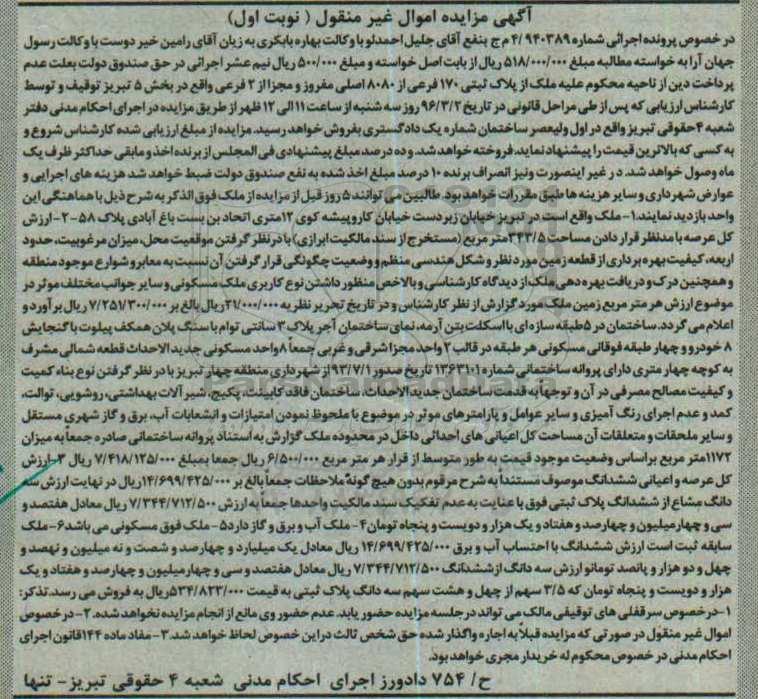 آگهی مزایده اموال غیر منقول ( نوبت اول)
در خصوص پرونده اجرائی شماره ۹۴۰۳۸۹/ ۴ م ج بنفع آقای جلیل احمدلو با وکالت بهاره بابکری به زیان آقای رامین خیر دوست با وکالت رسول
جهان آرا به خواسته مطالبه مبلغ ۵۱۸/۰۰۰/۰۰۰ ریال از بابت اصل خواسته و مبلغ ۵۰۰/۰۰۰ ریال نیم عشر اجرائی در حق صندوق دولت بعلت عدم
پرداخت دین از ناحیه محکوم علیه ملک از پلاک ثبتی ۱۷۰ فرعی از ۸۰۸۰ اصلی مفروز و مجزا از ۲ فرعی واقع در بخش ۵ تبریز توقیف و توسط
کارشناس ارزیابی که پس از طی مراحل قانونی در تاریخ ۹۶/۳/۲ روز سه شنبه از ساعت ۱۱ الی ۱۲ ظهر از طریق مزایده در اجرای احکام مدنی دفتر
شعبه ۴ حقوقی تبریز واقع در اول ولیعصر ساختمان شماره یک دادگستری بفروش خواهد رسید. مزایده از مبلغ ارزیابی شده کارشناس شروع و
به کسی که بالاترین قیمت را پیشنهاد نماید، فروخته خواهد شد. و ده درصد مبلغ پیشنهادی فی المجلس از برنده اخذ و مابقی حداکثر ظرف یک
ماه وصول خواهد شد. در غیر اینصورت ونیز انصراف برنده ۱۰ درصد مبلغ اخذ شده به نفع صندوق دولت ضبط خواهد شد هزینه های اجرایی و
عوارض شهرداری و سایر هزینه ها طبق مقررات خواهد بود. طالبین می توانند ۵ روز قبل از مزایده از ملک فوق الذکر به شرح ذیل با هماهنگی این
واحد بازدید نمایند.۱- ملک واقع است در تبریز خیابان زبردست خیابان کاروپیشه کوی ۱۲متری اتحاد بن بست باغ آبادی پلاک ۵۸-۲- ارزش
کل عرصه با مدنظر قرار دادن مساحت ۳۴۳/۵ متر مربع (مستخرج از سند مالکیت ابرازی) با درنظر گرفتن موقعیت محل، میزان مرغوبیت، حدود
اربعه، کیفیت بهره برداری از قطعه زمین مورد نظر و شکل هندسی منظم و وضعیت چگونگی قرار گرفتن آن نسبت به معابر و شوارع موجود منطقه
و همچنین درک و دریافت بهره دهی ملک از دیدگاه کارشناسی و بالاخص منظور داشتن نوع کاربری ملک مسکونی و سایر جوانب مختلف موثر در
موضوع ارزش هر متر مربع زمین ملک مورد گزارش از نظر کارشناس و در تاریخ تحریر نظریه ۲۱/۰۰۰/۰۰۰ ریال بالغ بر ۷/۲۵۱/۳۰۰/۰۰۰ ریال برآورد و
اعلام می گردد. ساختمان در ۵طبقه سازه ای با اسکلت بتن آرمه، نمای ساختمان آجر پلاک ۳ سانتی توام با سنگ پلان همکف پیلوت با گنجایش
۸ خودرو و چهار طبقه فوقانی مسکونی هر طبقه در قالب ۲ واحد مجزا شرقی و غربی جمعاً ۸ واحد مسکونی جدید الاحداث قطعه شمالی مشرف
به کوچه چهار متری دارای پروانه ساختمانی شماره ۱۳۶۳۱۰۱ تاریخ صدور ۹۳/۷/۱ از شهرداری منطقه چهار تبریز با در نظر گرفتن نوع بناء کمیت
و کیفیت مصالح مصرفی در آن و توجهاً به قدمت ساختمان جدید الاحداث، ساختمان فاقد کابینت، پکیج، شیرآلات بهداشتی، روشویی، توالت،
کمد و عدم اجرای رنگ آمیزی و سایر عوامل و پارامترهای موثر در موضوع با ملحوظ نمودن امتیازات و انشعابات آب، برق و گاز شهری مستقل
و سایر ملحقات و متعلقات آن مساحت کل اعیانی های احداثی داخل در محدوده ملک گزارش به استناد پروانه ساختمانی صادره جمعاً به میزان
۱۱۷۲متر مربع براساس وضعیت موجود قیمت به طور متوسط از قرار هر متر مربع ۶/۵۰۰/۰۰۰ ریال جمعا بمبلغ ۷/۴۱۸/۱۲۵/۰۰۰ ریال ۳- ارزش
کل عرصه و اعیانی ششدانگ موصوف مستنداً به شرح مرقوم بدون هیچ گونه ملاحظات جمعاً بالغ بر ۱۴/۶۹۹/۴۲۵/۰۰۰ریال در نهایت ارزش سه
دانگ مشاع از ششدانگ پلاک ثبتی فوق با عنایت به عدم تفکیک سند مالکیت واحدها جمعاً به ارزش ۷/۳۴۴/۷۱۲/۵۰۰ ریال معادل هفتصد و
سی و چهار میلیون و چهارصد و هفتاد و یک هزار و دویست و پنجاه تومان۴- ملک آب و برق و گاز دارد۵- ملک فوق مسکونی می باشد۶- ملک
سابقه ثبت است ارزش ششدانگ با احتساب آب و برق ۱۴/۶۹۹/۴۲۵/۰۰۰ ریال معادل یک میلیارد و چهارصد و شصت و نه میلیون و نهصد و
چهل و دو هزار و پانصد تومانو ارزش سه دانگ از ششدانگ ۷/۳۴۴/۷۱۲/۵۰۰ ریال معادل هفتصد و سی و چهارمیلیون و چهارصد و هفتاد و یک
هزار و دویست و پنجاه تومان که ۳/۵ سهم از چهل و هشت سهم سه دانگ پلاک ثبتی به قیمت ۵۳۴/۸۲۳/۰۰۰ریال به فروش می رسد. تذکر:
۱- درخصوص سرقفلی های توقیفی مالک می تواند در جلسه مزایده حضور یابد. عدم حضور وی مانع از انجام مزایده نخواهد شد. ۲- در خصوص
اموال غیر منقول در صورتی که مزایده قبلاً به اجاره واگذار شده حق شخص ثالث در این خصوص لحاظ خواهد شد. ۳- مفاد ماده ۱۴۴ قانون اجرای
احکام مدنی در خصوص محکوم له خریدار مجری خواهد بود.
ح/ ۷۵۴ دادورز اجرای احکام مدنی شعبه ۴ حقوقی تبریز - تنها